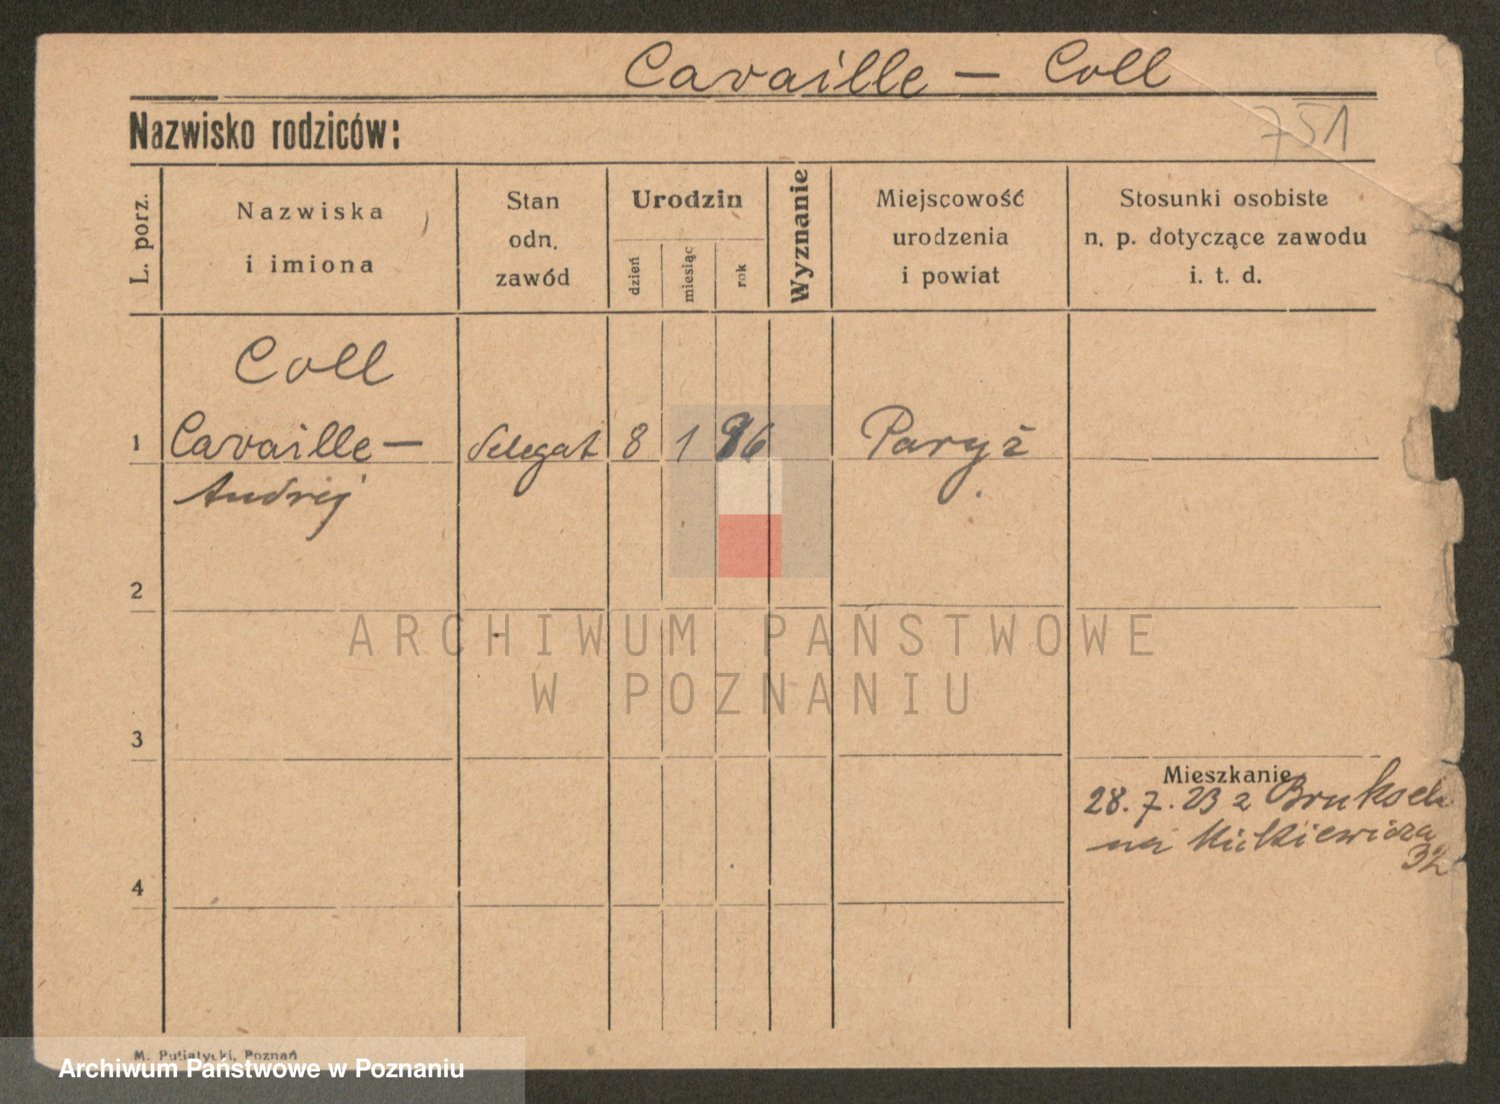 Cavaille — Coll
751
Nazwisko rodziców:
L. porz.
Nazwiska
i imiona
Stan
odn.
zawód
Urodzin
dzień
miesiąc
rok
Wyznanie
Miejscowość
urodzenia
i powiat
Stosunki osobiste
n. p. dotyczące zawodu
i. t. d.
Coll
1 Cavaille — delegat 8 1 96 Paryż
Andrzej
2
ARCHIWUM PAŃSTWOWE
W POZNANIU
3
Mieszkanie
28. 7. 23 z Brukseli
na Mickiewicza
32
4
M. Putiatycki, Poznań
Archiwum Państwowe w Poznaniu